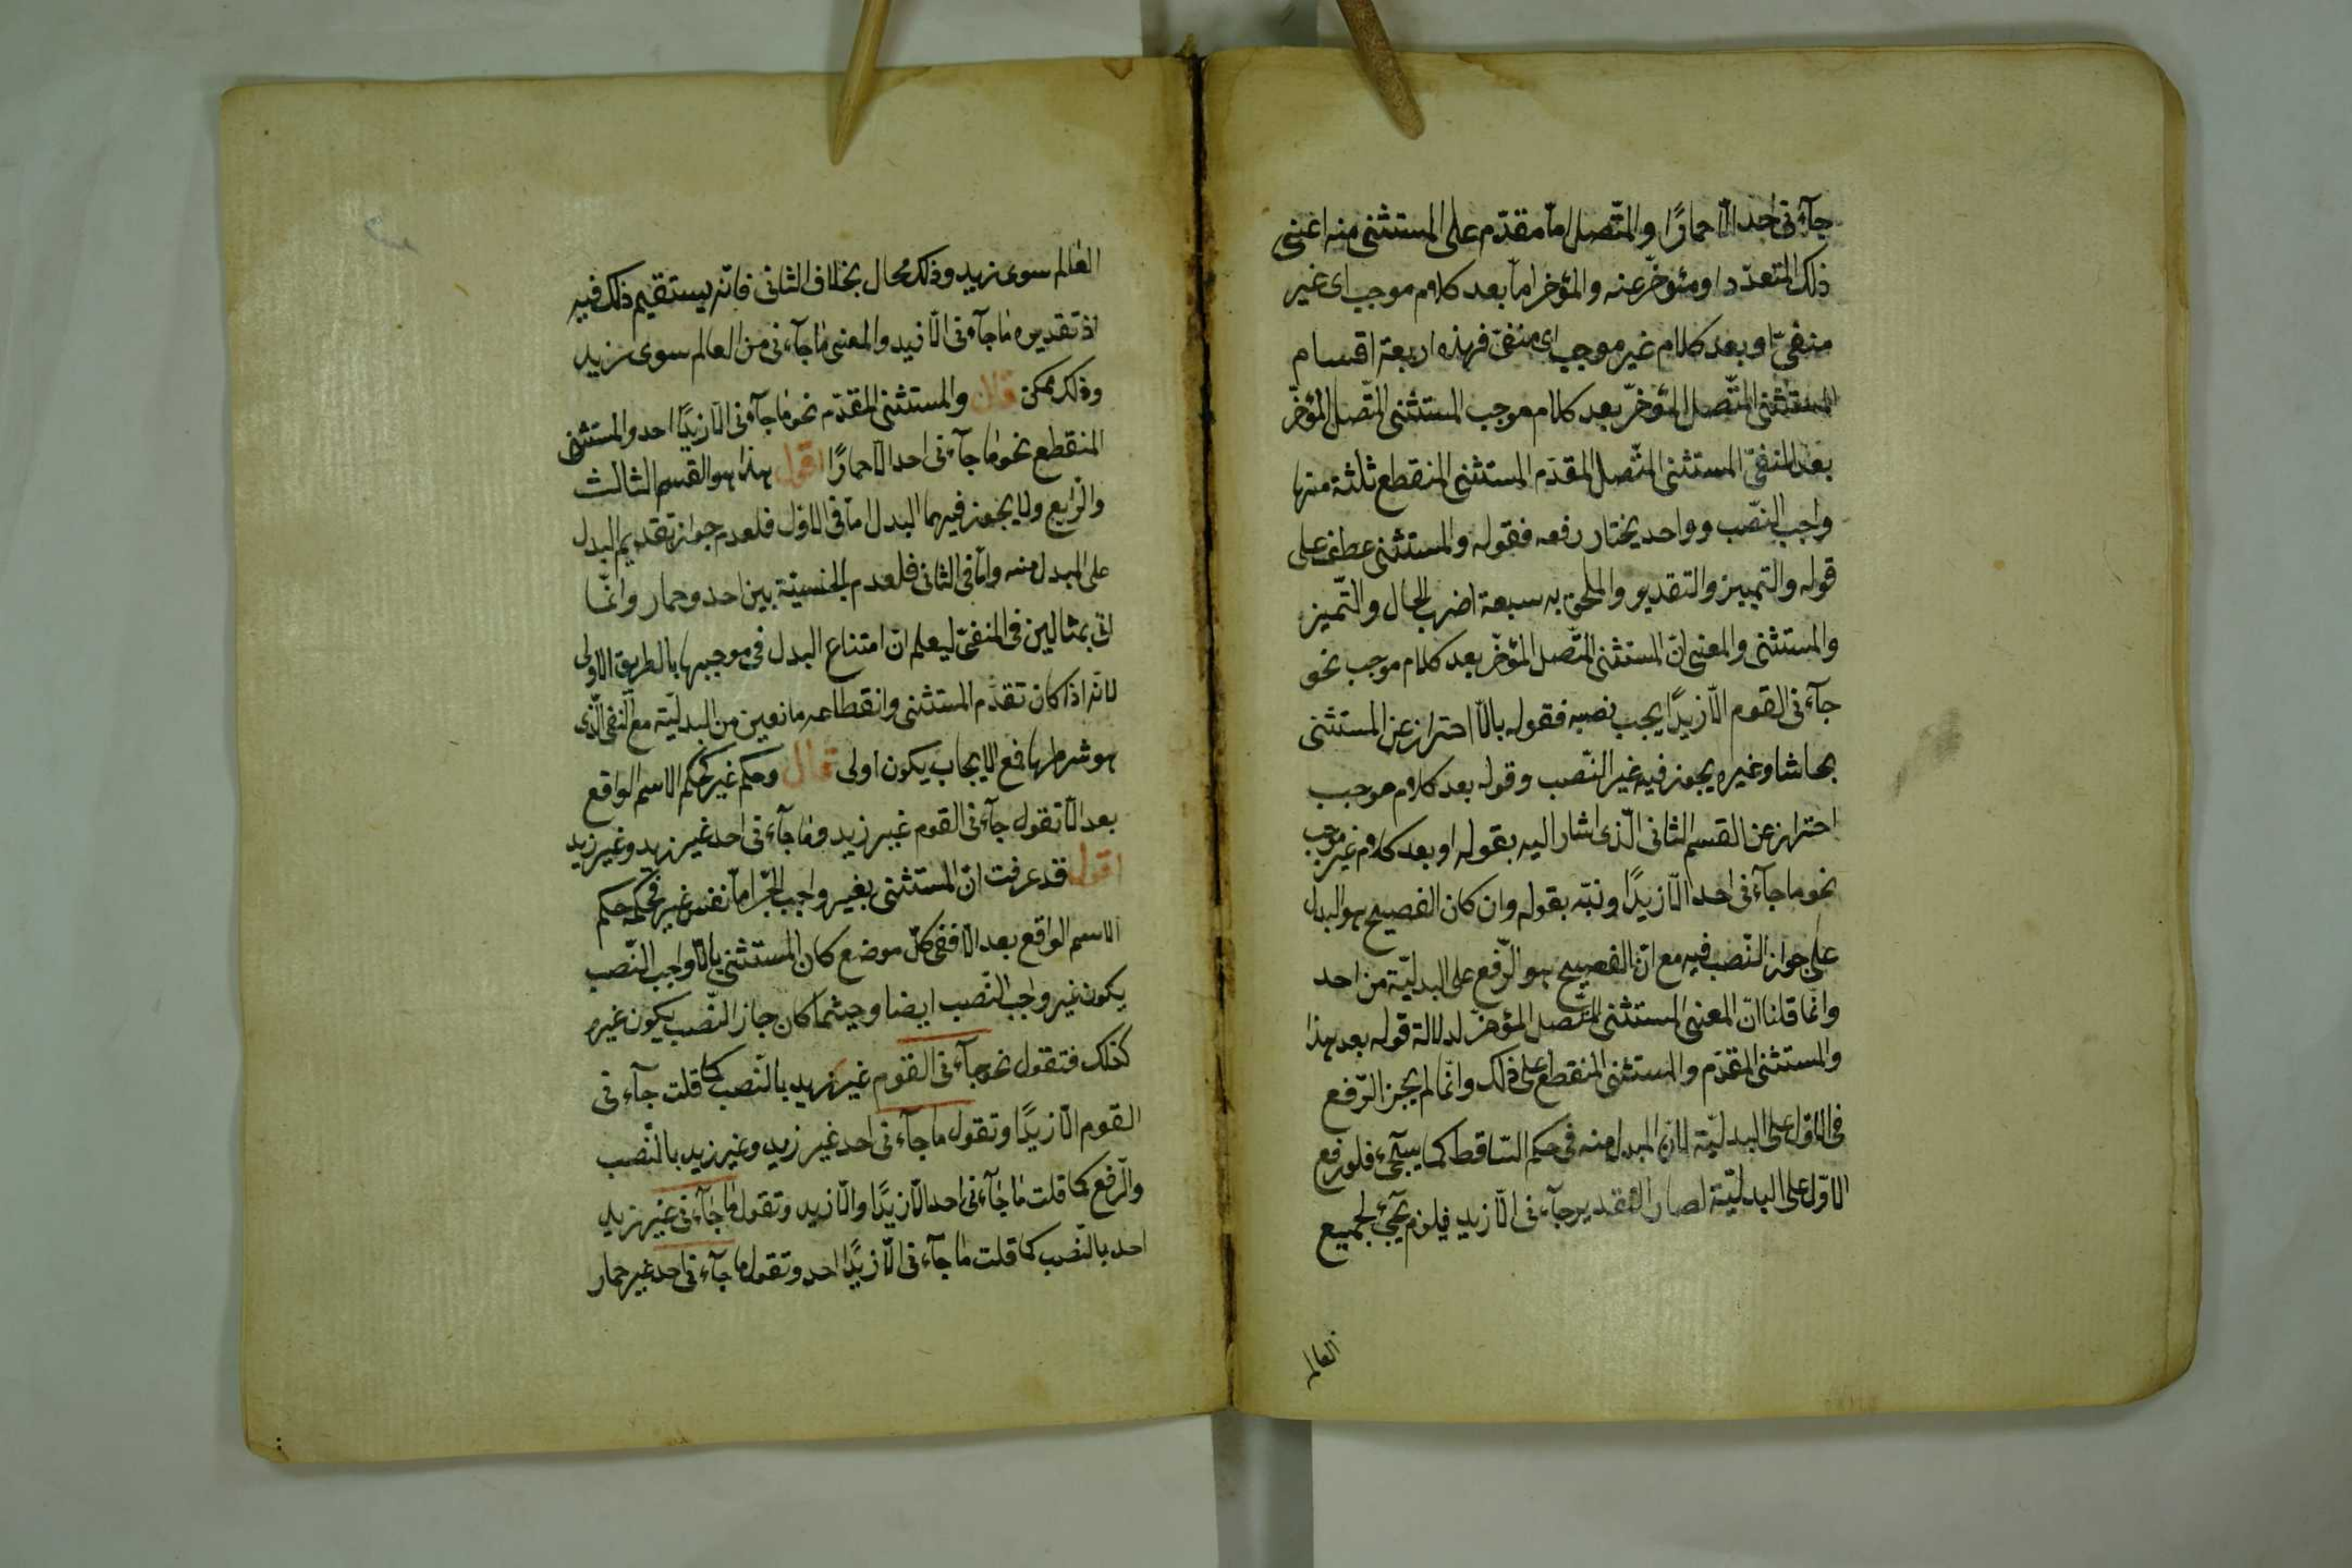 جآءنی احد الّا حمارًا والمتّصل امّا مقدّم علی المستثنی منه اعنی
ذلک المتعدّد او مئوخّر عنه والمؤخر امّا بعد کلام موجب ای غیر
منفیّ او بعد کلام غیر موجب ای منفیّ فهذه اربعة اقسام
المستثنی المتّصل المؤخرّ بعد کلام موجب المستثنی المتّصل المؤخرّ
بعد المنفیّ المستثنی المتّصل المقدّم المستثنی المنقطع ثلثة منها
واجب النّصب وواحد یختار رفعه فقوله والمستثنی عطف علی
قوله والتمییز والتقدیر والملحق به سبعة اضرب الحال والتّمیز
والمستثنی والمعنی انّ المستثنی المتّصل المؤخّر بعد کلام موجب نحو
جآءنی القوم الّا زیدًا یجب نصبه فقوله بالّا احتراز عن المستثنی
بحاشا وغیره یجوز فیه غیر النّصب وقوله بعد کلام موجب
احتراز عن القسم الثانی الّذی اشار الیه بقوله او بعد کلام غیر موجب
نحو ما جآءنی احد الّا زیدًا ونبّه بقوله وان کان الفصیح هو البدل
علی جواز النّصب فیه مع انّ الفصیح هو الرّفع علی البدلیّة من احد
وانّما قلنا انّ المعنی المستثنی المتّصل المؤخر لدلالة قوله بعد هذا
والمستثنی المقدّم والمستثنی المنقطع علی ذلک وانّما لم یجز الرّفع
فی الاوّل علی البدلیّة لانّ المبدل منه فی حکم السّاقط کما سیجیء فلو رفع
الاوّل علی البدلیّة لصار التقدیر جآءنی الّا زید فیلزم مجیء جمیع
العالم
العالم سوی زید وذلک محال بخلاف الثانی فانّه یستقیم ذلک فیه
اذ تقدیره ما جآءنی الّا زید والمعنی ما جآءنی من العالم سوی زید
وذلک ممکن قال والمستثنی المقدّم نحو ما جآءنی الّا زیدًا احد والمستثنی
المنقطع نحو ما جآءنی احد الّا حمارًا اقول هذا هو القسم الثالث
والرّابع ولا یجوز فیهما البدل امّا فی الاوّل فلعدم جواز تقدیم البدل
علی المبدل منه وامّا فی الثانی فلعدم الجنسیّة بین احد وحمار وانّما
اتی بمثالین فی المنفیّ لیعلم انّ امتناع البدل فی موجبها بالطریق الاولی
لانّه اذا کان تقدّم المستثنی وانقطاعه مانعین من البدلیّة مع النّفی الّذی
هو شرطها فمع الایجاب یکون اولی قال وحکم غیر کحکم الاسم الواقع
بعد الّا تقول جآءنی القوم غیر زید وما جآءنی احد غیر زید وغیر زید
اقول قد عرفت انّ المستثنی بغیر واجب الجرّ امّا نفس غیر فحکمه حکم
الاسم الواقع بعد الّا ففی کلّ موضع کان المستثنی بالّا واجب النّصب
یکون غیر واجب النّصب ایضا وحیثما کان جاز النّصب یکون غیر
کذلک فتقول نحو جآءنی القوم غیر زید بالنّصب کما قلت جآءنی
القوم الّا زیدًا وتقول ما جآءنی احد غیر زید وغیر زید بالنّصب
والرّفع کما قلت ما جآءنی احد الّا زیدًا والّا زید وتقول ما جآءنی غیر زید
احد بالنّصب کما قلت ما جآءنی الّا زیدًا احد وتقول ما جآءنی احد غیر حمار